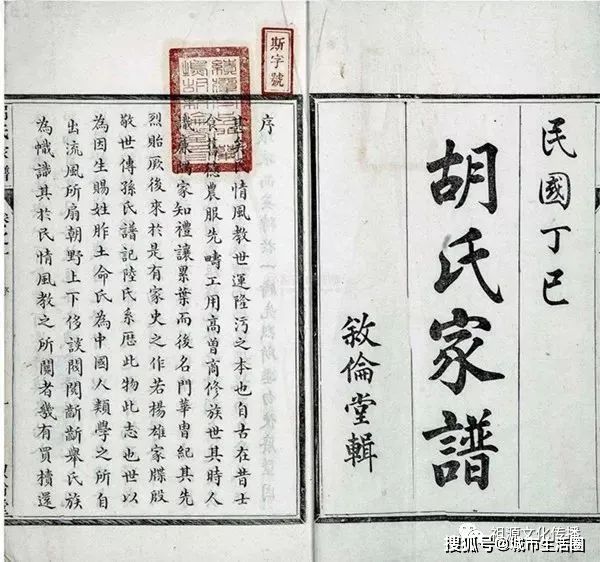 民國丁巳
胡氏家譜
敘倫堂輯
斯字號
序
甚矣民情風教世運隆污之本也自古在昔士
食舊德農服先疇工用高曾商修族世其時人
識廉陽家知禮讓累葉而後名門華胄紀其先
烈貽厥後來於是有家史之作若楊雄家牒殷
敬世傳孫氏譜記陸氏系歷此物此志也世以
為因生賜姓胙土命氏為中國人類學之所自
出流風所扇朝野上下侈談閥閱斷斷舉氏族
為幟識其於民情風教之所關者幾有買櫝還
祖源文化传播
搜狐号@城市生活圈